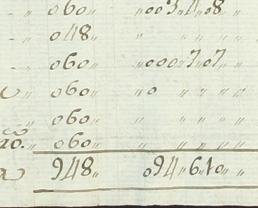 - „ 060 „ „003„4„08 „
- „ 048 „ „ „ „ „ „
- „ 060 „ „000„7„07 „
„ 060 „ „0 „ „ „ „
„ 060 „ „ „ „ „ „
20. „ 060 „ „ „ „ „ „
948 „ 094„6„10 „